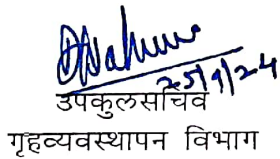 25/9/24
उपकुलसचिव
गृहव्यवस्थापन विभाग